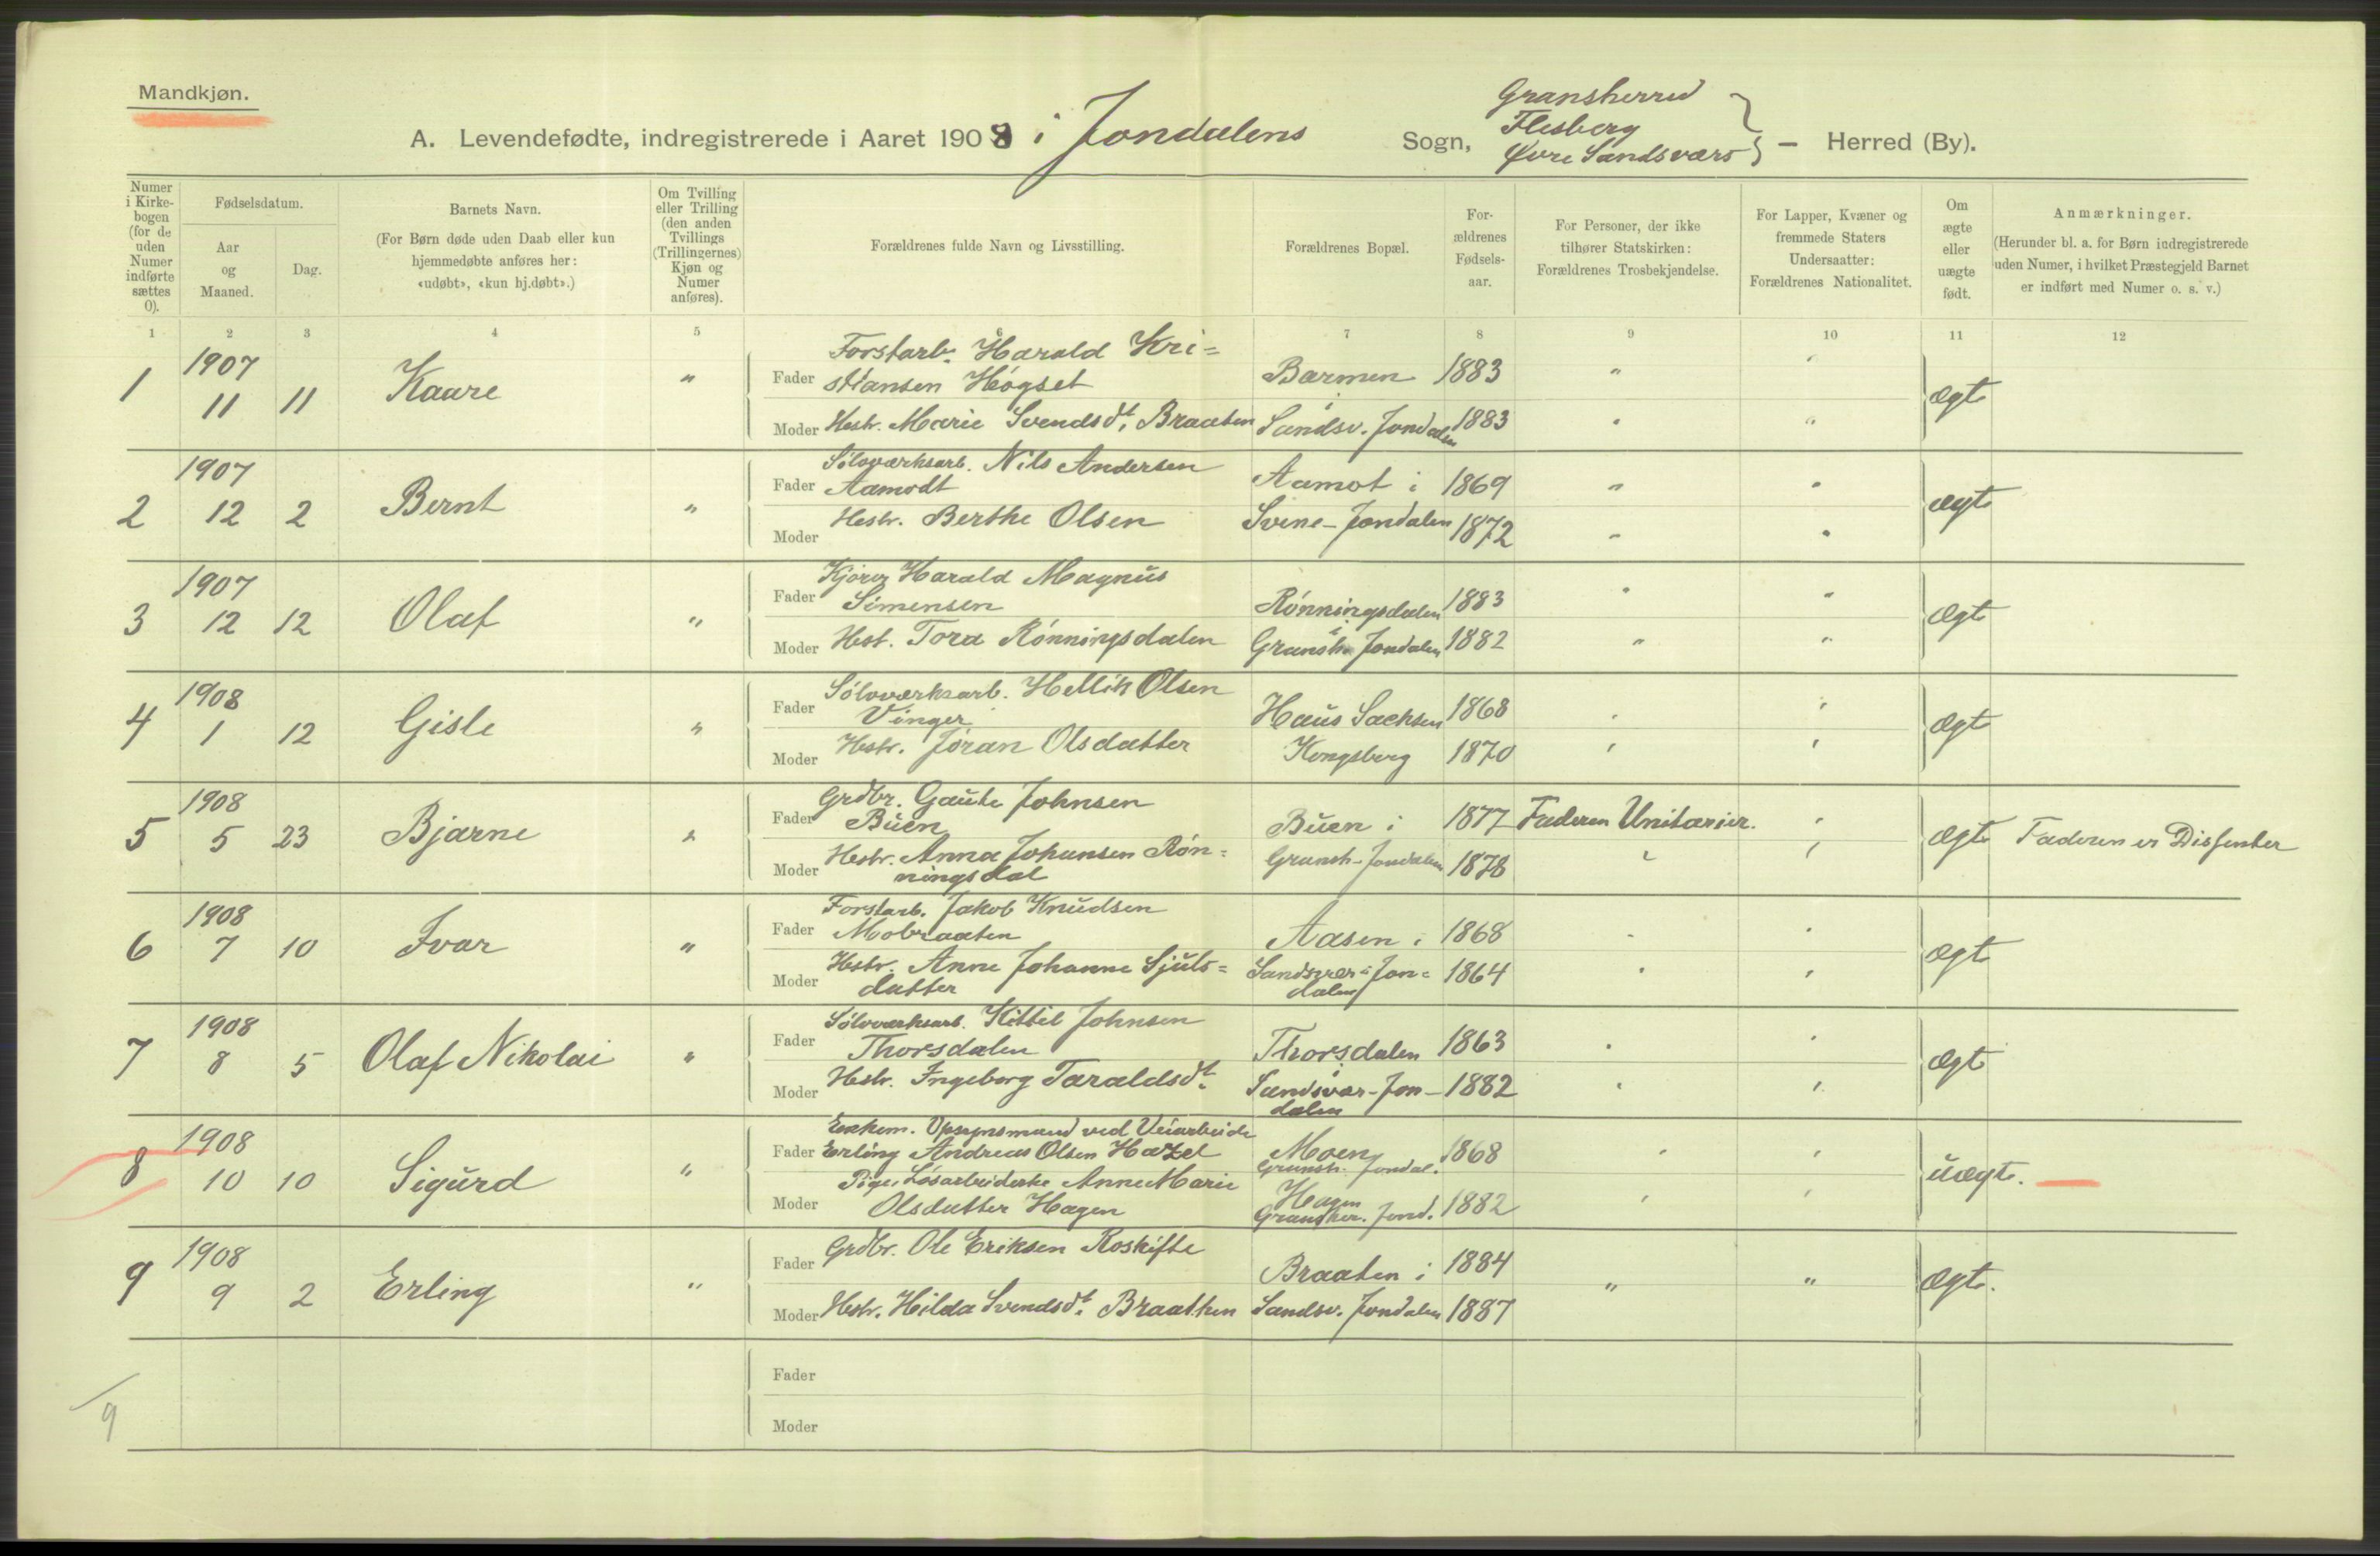 Mandkjøn.
A. Levendefødte, indregistrerede i Aaret 1908 i Jondalens Sogn, Gransherred
Flesberg
Øvre Sandsværs } - Herred (By).
Numer i Kirkebogen (for de uden Numer indførte sættes 0).
Fødselsdatum.
Aar og Maaned.
Dag.
Barnets Navn.
(For Børn døde uden Daab eller kun hjemmedøbte anføres her: «udøbt», «kun hj.døbt».)
Om Tvilling eller Trilling (den anden Tvillings (Trillingernes) Kjøn og Numer anføres).
Forældrenes fulde Navn og Livsstilling.
Forældrenes Bopæl.
For-ældrenes Fødsels-aar.
For Personer, der ikke tilhører Statskirken: Forældrenes Trosbekjendelse.
For Lapper, Kvæner og fremmede Staters Undersaatter: Forældrenes Nationalitet.
Om ægte eller uægte født.
Anmærkninger.
(Herunder bl. a. for Børn indregistrerede uden Numer, i hvilket Præstegjeld Barnet er indført med Numer o. s. v.)
1 2 3 4 5 7 8 9 10 11 12
1 1907 11 11 Kaare " Fader Forstarb. Harald Kri=
stiansen Högset Barmen 1883 " " ægte
Moder Hustr. Marie Svendsdt. Braaten i Sandsv. Jondalen 1883 " "
2 1907 12 2 Bernt " Fader Sölvværksarb. Nils Andersen
Aamodt Aamot i 1869 " " ægte
Moder Hustr. Berthe Olsen Svene-Jondalen 1872 " "
3 1907 12 12 Olaf " Fader Kjörer Harald Magnus
Simensen Rönningsdalen 1883 " " ægte
Moder Hust. Tora Rönningsdalen i Gransh. Jondalen 1882 " "
4 1908 1 12 Gisle " Fader Sölvværksarb. Hellik Olsen
Vinger Haus Sachsen 1868 " " ægte
Moder Hustr. Jöran Olsdatter Kongsberg 1870 " "
5 1908 5 23 Bjarne " Fader Grdbr. Gaute Johnsen
Buen Buen i 1877 Faderen Unitarier. " ægte Faderen er Dissenter
Moder Hustr. Anna Johansen Rön=
ningsdal Gransh-Jondalen 1878 " "
6 1908 7 10 Ivar " Fader Forstarb. Jakob Knudsen
Mobraaten Aasen i 1868 " " ægte
Moder Hustr. Anne Johanne Sjuls=
datter Sandsvær-Jon=
dalen 1864 " "
7 1908 8 5 Olaf Nikolai " Fader Sölvværksarb. Kittil Johnsen
Thorsdalen Thorsdalen 1863 " " ægte
Moder Hustr. Ingeborg Taraldsdt. i Sandsvær-Jon-
dalen 1882 " "
8 1908 10 10 Sigurd " Fader Opsynsmand ved Veiarbeide
Erling Andreas Olsen Hazel Moen
Gransh. Jondal. 1868 " " uægte.
Moder Pige, Lösarbeiderske Anne Marie
Olsdatter Hagen Hagen
Gransher. Jond. 1882 " "
9 1908 9 2 Erling " Fader Grdbr. Ole Eriksen Roskifte Braaten i 1884 " " ægte.
Moder Hustr. Hilda Svendsdt. Braathen Sandsv. Jondalen 1887
Fader
Moder
9